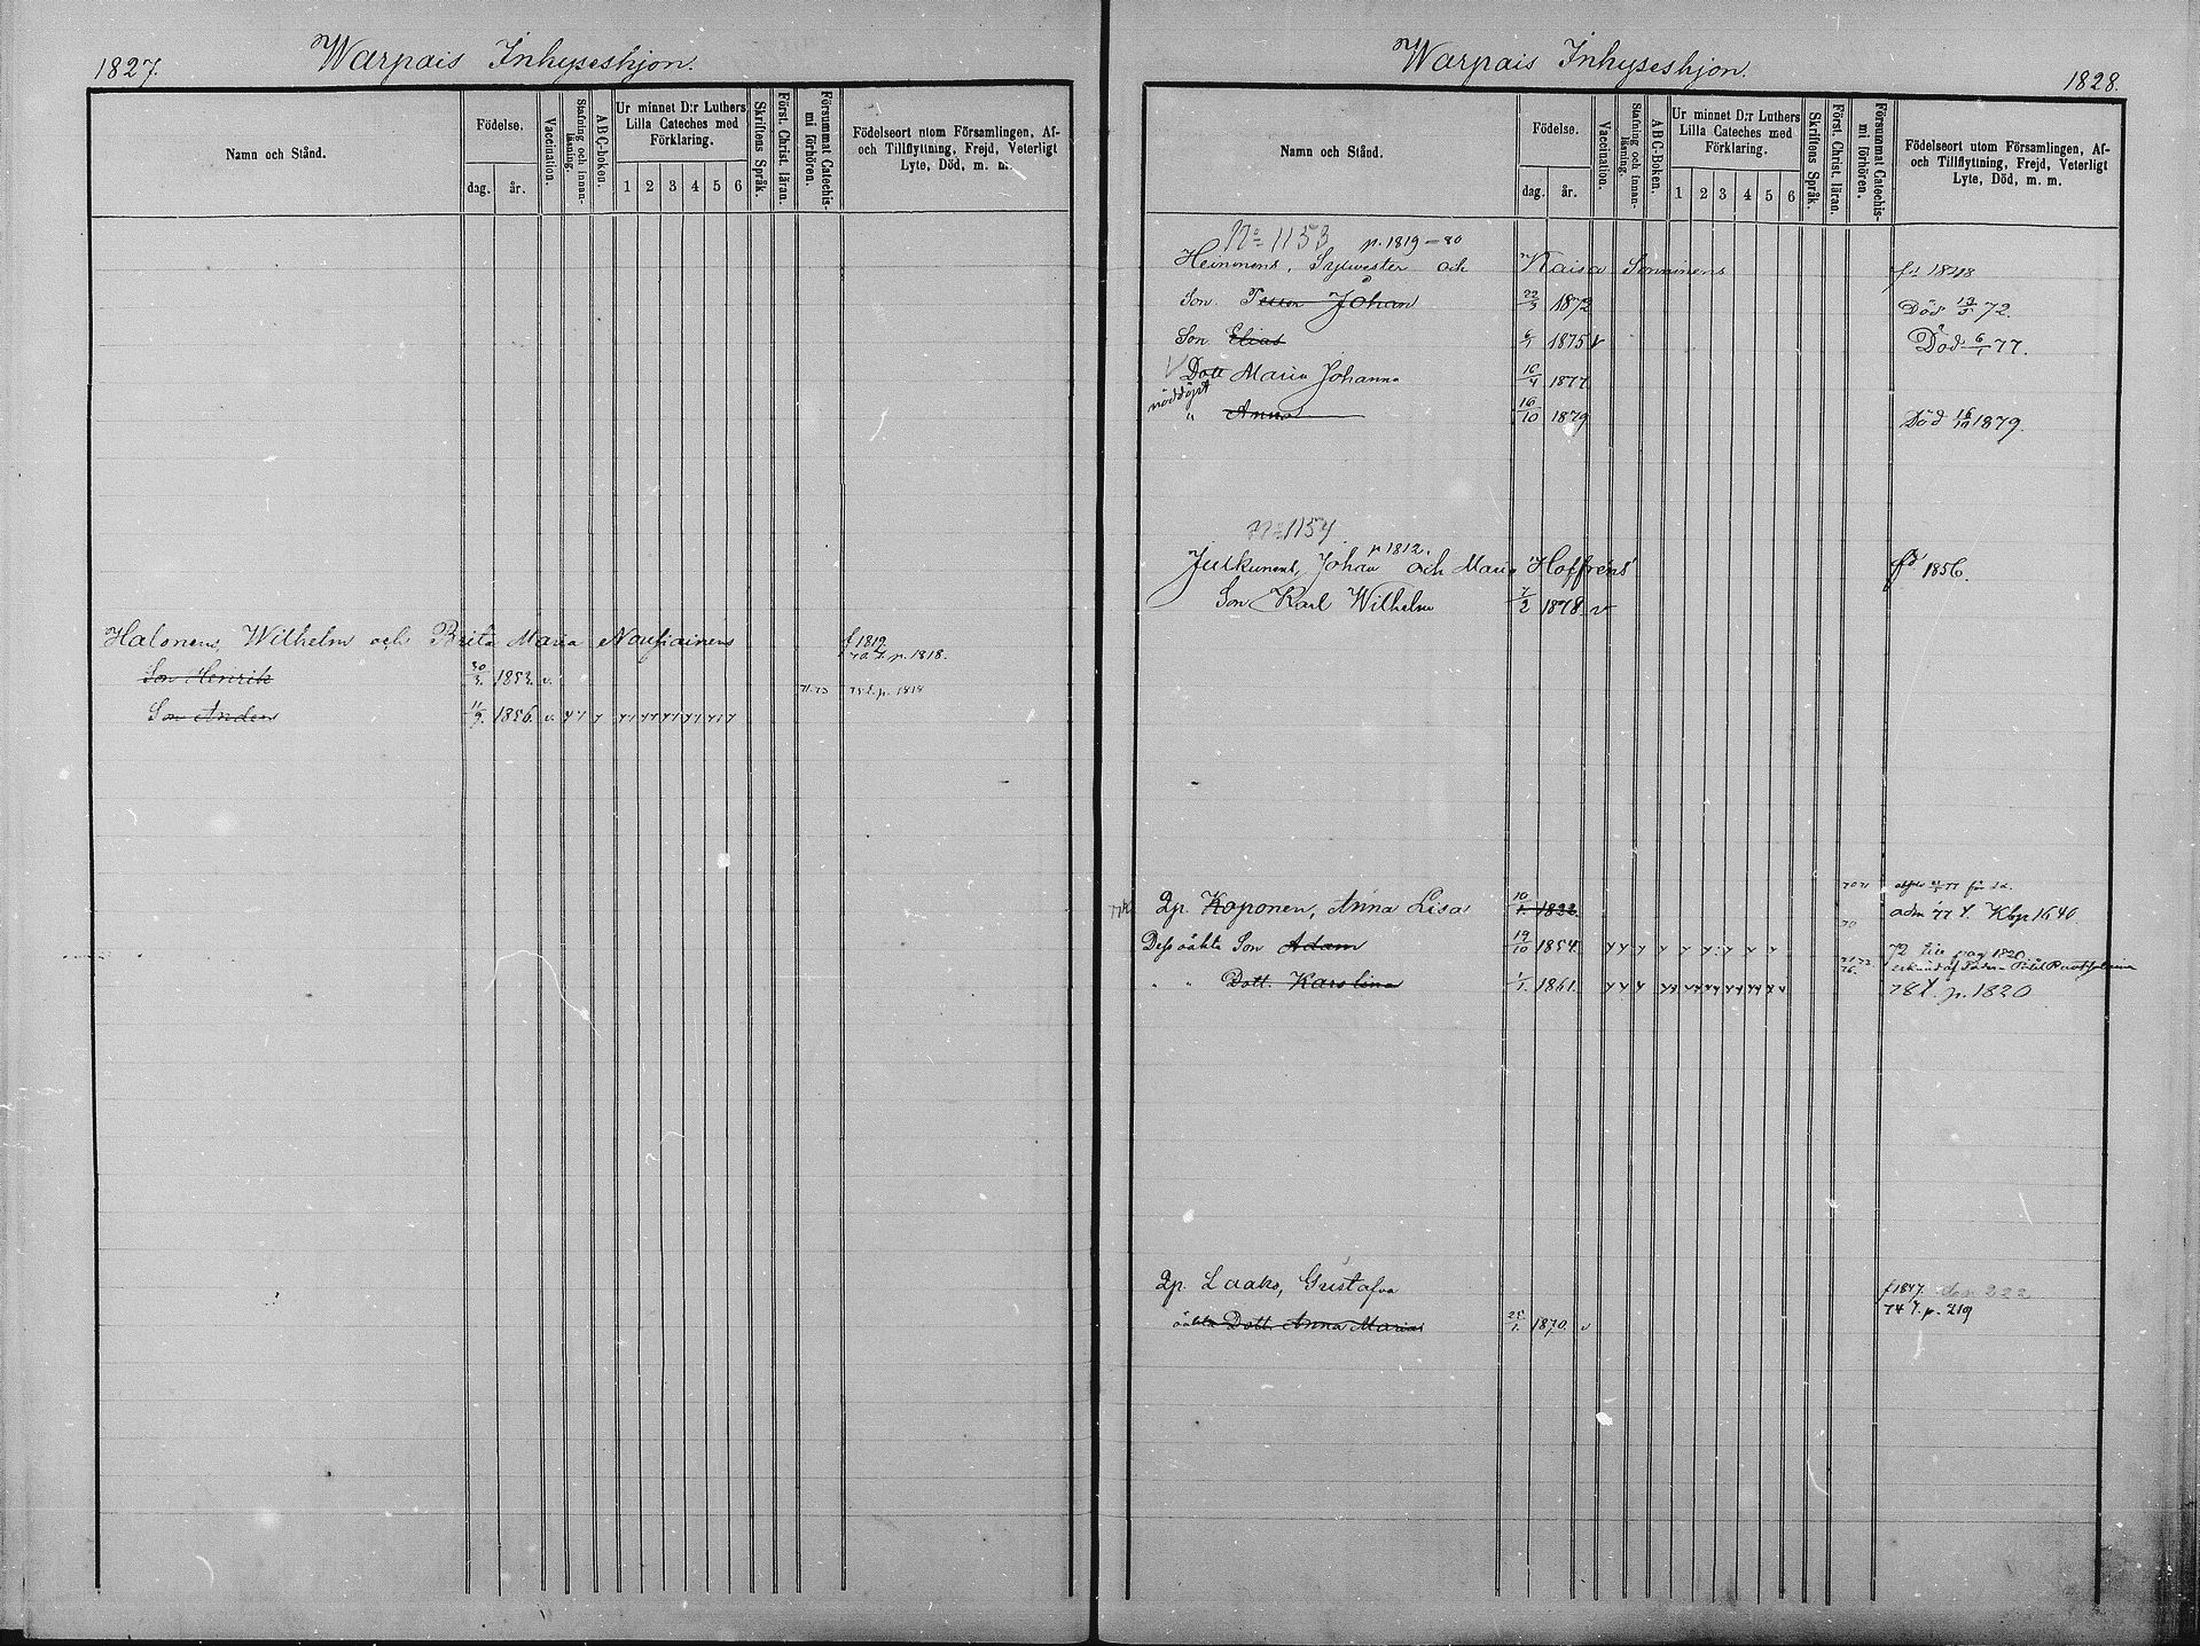 1827.
Warpais Inhyseshjon.
Namn och Stånd.
Födelse.
dag.
år.
Vaccination.
Stafning och innan-läsning.
ABC-boken.
Ur minnet D:r Luthers
Lilla Cateches med
Förklaring.
1 2 3 4 5 6
Skriftens Språk.
Först. Christ. läran.
Försummat Catechis-
mi förhören.
Födelseort utom Församlingen, Af-
och Tillflyttning, Frejd, Veterligt
Lyte, Död, m. m.
Halonens, Wilhelm och Brita Maria Naufiainens f 1819
70. f. p. 1818.
Son Henrik 30/3. 1853. v. 71.73
Son Anders 11/9. 1856. v.
Warpais Inhyseshjon.
1828.
Namn och Stånd.
Födelse.
dag.
år.
Vaccination.
Stafning och innan-läsning.
ABC-Boken.
Ur minnet D:r Luthers
Lilla Cateches med
Förklaring.
1 2 3 4 5 6
Skriftens Språk.
Först. Christ. läran.
Försummat Catechis-
mi förhören.
Födelseort utom Församlingen, Af-
och Tillflyttning, Frejd, Veterligt
Lyte, Död, m. m.
No 1153 p. 1819-80
Heinonens, Sylwester och Kaisa Sonninens
Son Johan 1872 Död 72.
Son Elias 6/1 1875 v Död 6/1 77.
Dott Maria Johanna 10/4 1877
nöddöpt
" Anna 16/10 1879 Död 16/10 1879.
No 1154
p 1812.
Julkunens, Johan och Maria Hoffrens fd 1856.
Son Karl Wilhelm 7/2 1878 v
70 71
Qp. Koponen, Anna Lisa 10/1. 1822. adm 77 f. Kbp 1640
70
Dess oäkta Son Adam 19/10 1854. 72 till pag 1820
" " Dott. Karolina 1/1. 1861. 78 f. p. 1820
Qp. Laaks, Gustafva f 1847.
74 f. p. 219
oäkta Dott. Anna Maria 25/1. 1870. v